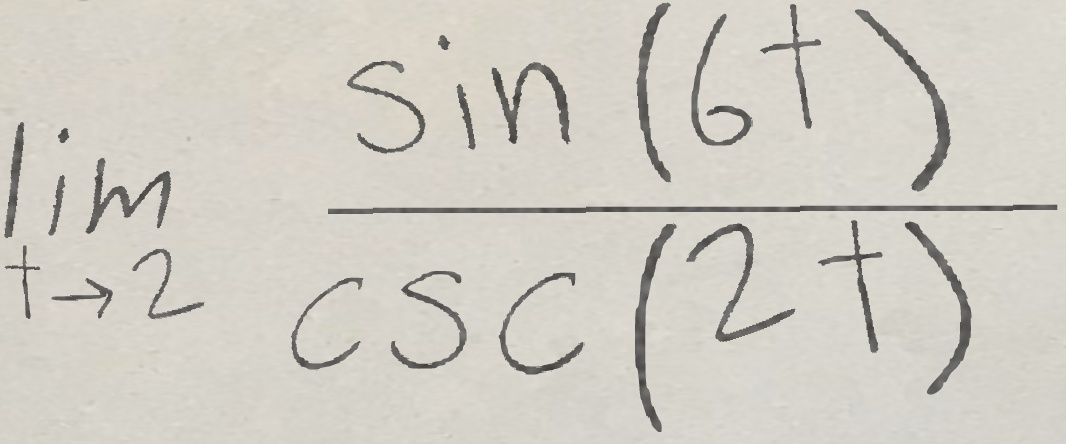 lim t→2 sin(6t) / csc(2t)